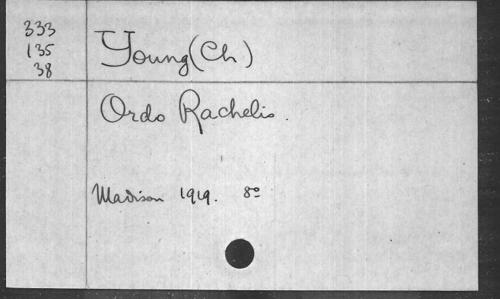 333
135
38
Young (Ch)
Ordo Rachelis.
Madison 1919. 8º